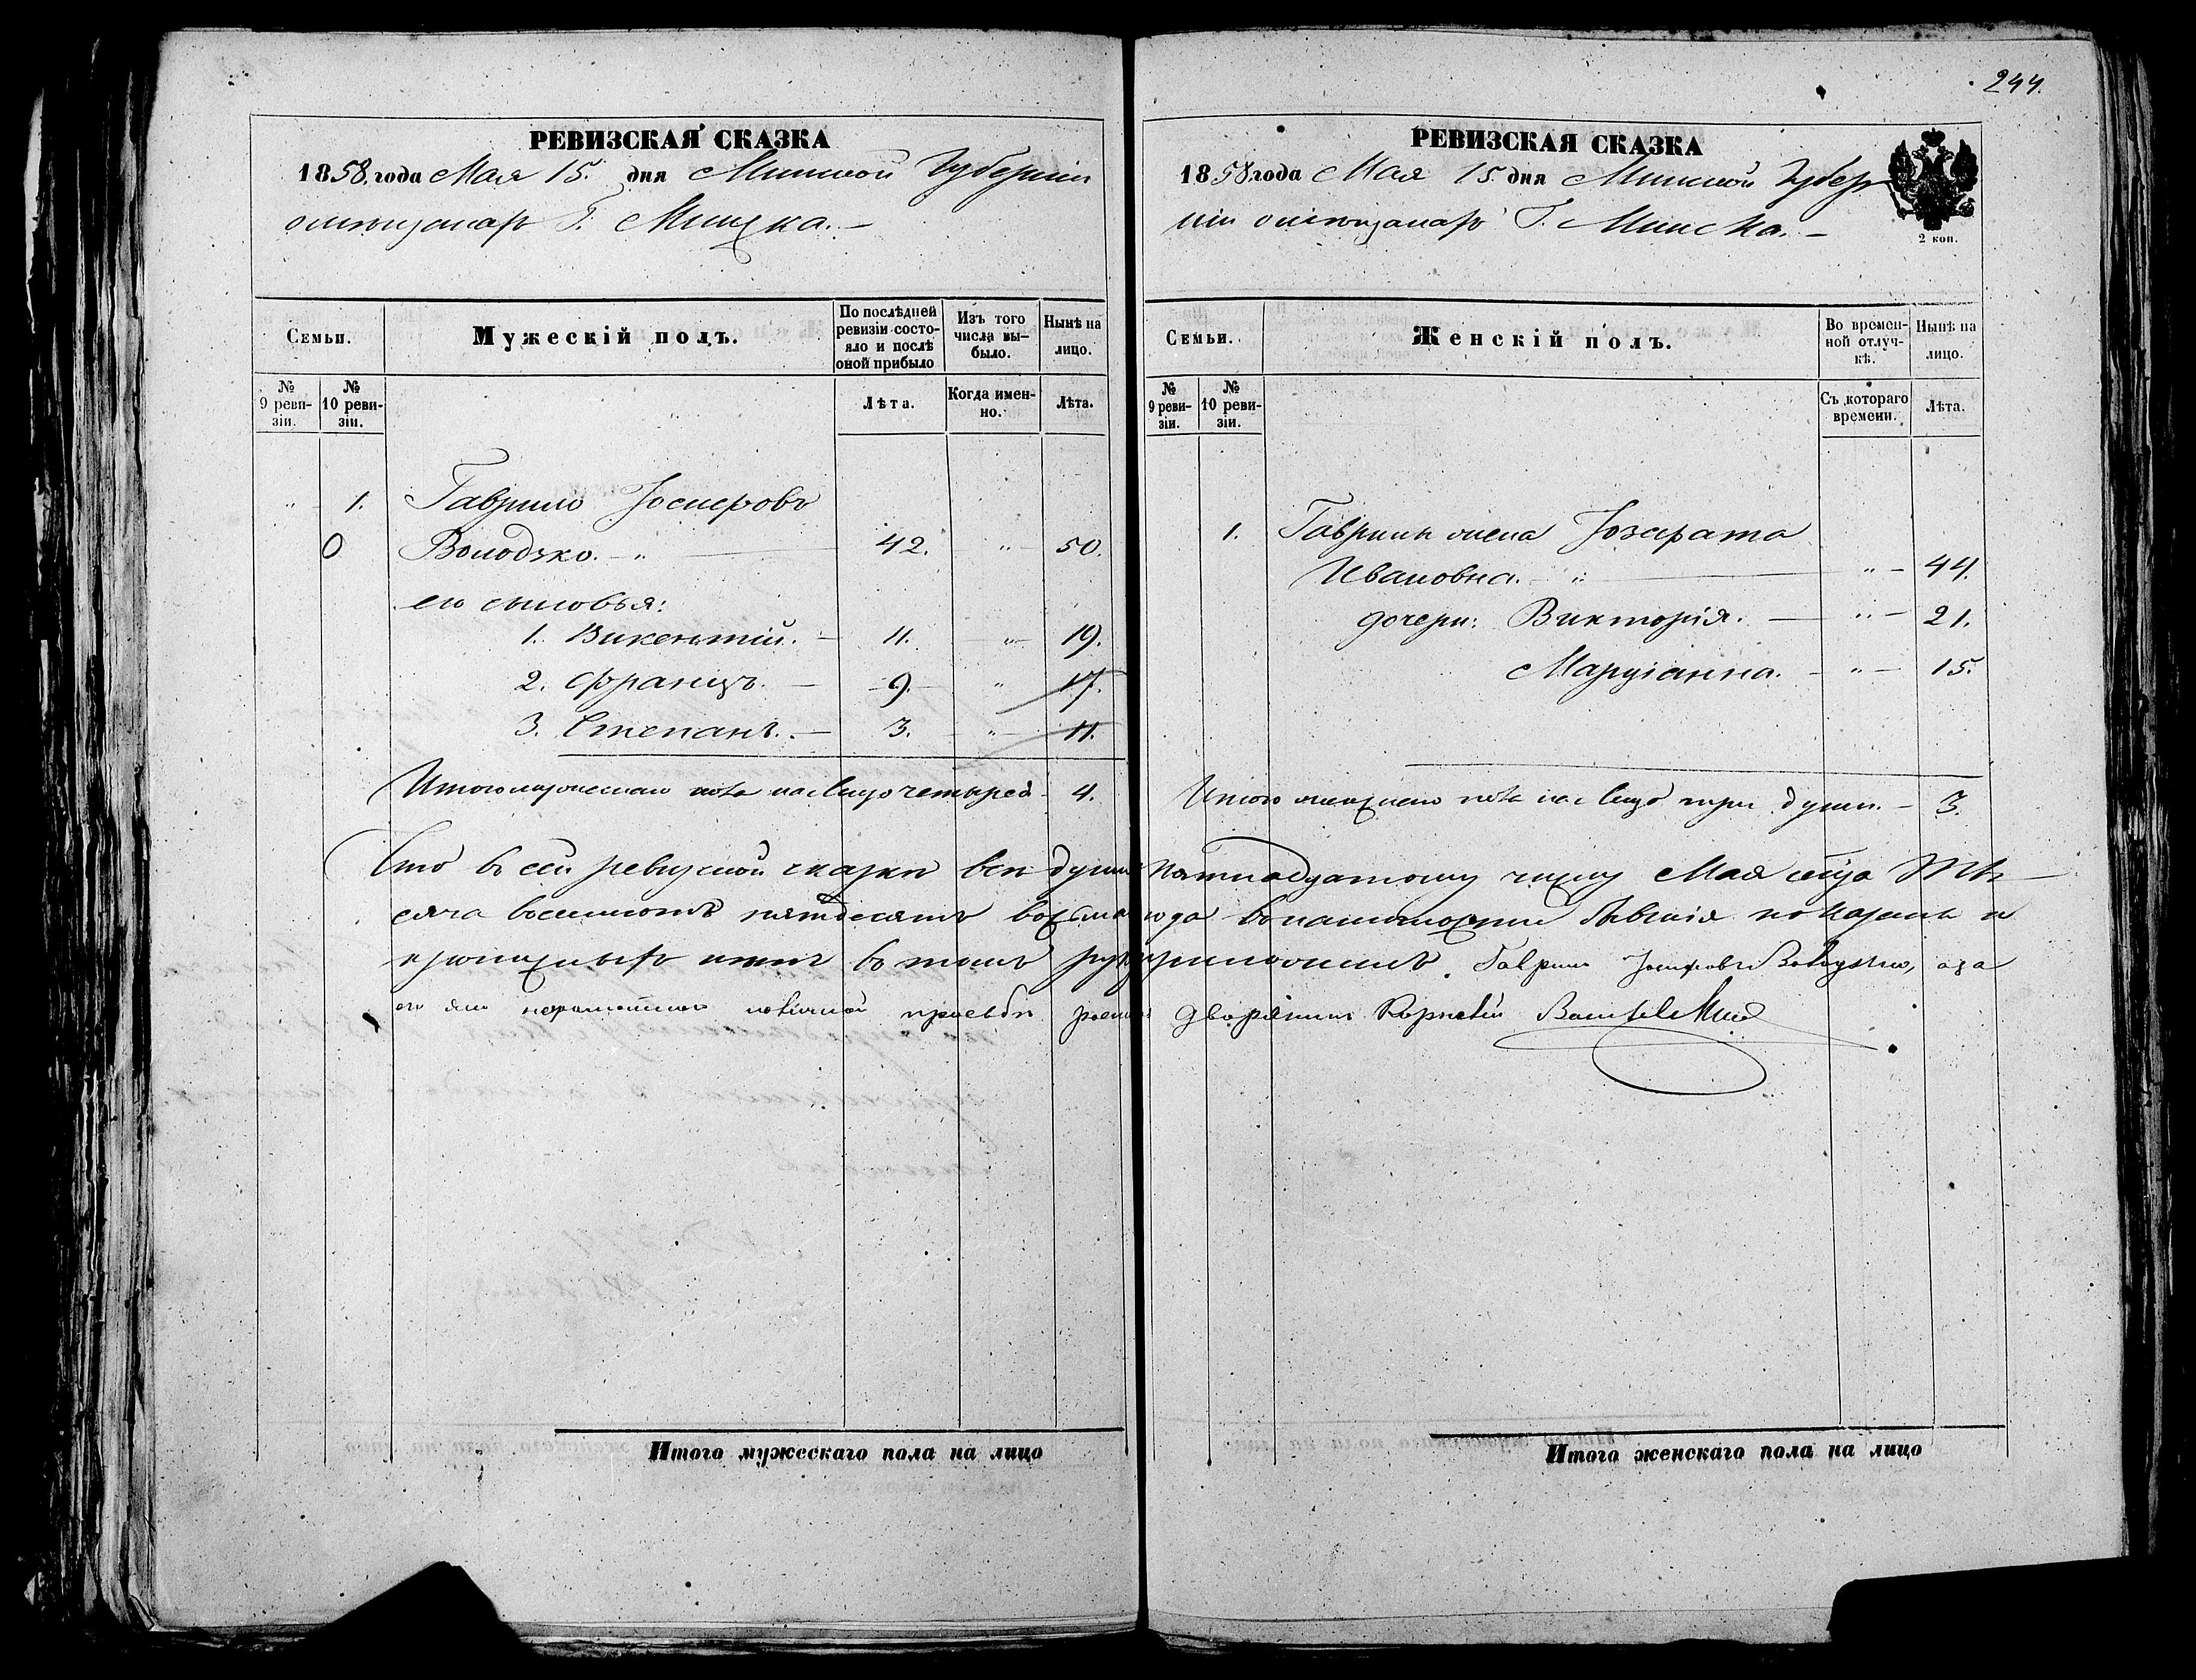 244.
РЕВИЗСКАЯ СКАЗКА
1858. года Мая 15. дня Минской Губерніи
Г. Минска. —
Семьи.
Мужескій полъ.
По послѣдней ревизіи состояло и послѣ оной прибыло
Изъ того числа выбыло.
Нынѣ на лицо.
№ 9 ревизіи.
№ 10 ревизіи.
Лѣта.
Когда именно.
Лѣта.
1. Гаврило Іосифовъ
0 Володзко. — " — 42. " — 50.
его сыновья:
1. Викентій. — 11. " — 19.
2. Францъ. — 9. " 17.
3. Степанъ. — 3. " — 11.
Итого мужескаго пола на лицо четыре — 4.
РЕВИЗСКАЯ СКАЗКА
1858 года Мая 15. дня Минской Губер
ніи Г. Минска. —
2 коп.
Семьи.
Женскій полъ.
Во временной отлучкѣ.
Нынѣ на лицо.
№ 9 ревизіи.
№ 10 ревизіи.
Съ котораго времени.
Лѣта.
1. Гаврилы жена Іозафата
Ивановна. " — " — 44.
дочери: Викторія. — " — 21.
Маріанна. — " — 15.
Итого женскаго пола на лицо три души. — 3.
Что в сей ревизкой сказки всѣ души пятнадцатому числу Мая сего мѣ
сяца восемсотъ пятдесятъ восьма года показаны и
в томъ Гаврило Іосифовъ Володзко, а за
его неграмотнаго личной прозьбѣ дворянинъ Корнелій
Итого мужескаго пола на лицо
Итого женскаго пола на лицо